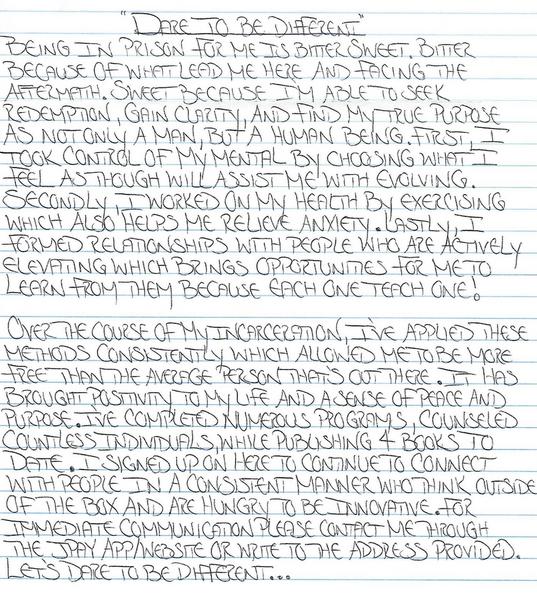 "DARE TO BE DIFFERENT"
BEING IN PRISON FOR ME IS BITTER SWEET. BITTER
BECAUSE OF WHAT LEAD ME HERE AND FACING THE
AFTERMATH. SWEET BECAUSE I'M ABLE TO SEEK
REDEMPTION, GAIN CLARITY, AND FIND MY TRUE PURPOSE
AS NOT ONLY A MAN, BUT A HUMAN BEING. FIRST, I
TOOK CONTROL OF MY MENTAL BY CHOOSING WHAT I
FEEL AS THOUGH WILL ASSIST ME WITH EVOLVING.
SECONDLY, I WORKED ON MY HEALTH BY EXERCISING
WHICH ALSO HELPS ME RELIEVE ANXIETY. LASTLY, I
FORMED RELATIONSHIPS WITH PEOPLE WHO ARE ACTIVELY
ELEVATING WHICH BRINGS OPPORTUNITIES FOR ME TO
LEARN FROM THEM BECAUSE EACH ONE TEACH ONE!
OVER THE COURSE OF MY INCARCERATION, I'VE APPLIED THESE
METHODS CONSISTENTLY WHICH ALLOWED ME TO BE MORE
FREE THAN THE AVERAGE PERSON THAT'S OUT THERE. IT HAS
BROUGHT POSITIVITY TO MY LIFE AND A SENSE OF PEACE AND
PURPOSE. I'VE COMPLETED NUMEROUS PROGRAMS, COUNSELED
COUNTLESS INDIVIDUALS, WHILE PUBLISHING 4 BOOKS TO
DATE. I SIGNED UP ON HERE TO CONTINUE TO CONNECT
WITH PEOPLE IN A CONSISTENT MANNER WHO THINK OUTSIDE
OF THE BOX AND ARE HUNGRY TO BE INNOVATIVE. FOR
IMMEDIATE COMMUNICATION PLEASE CONTACT ME THROUGH
THE JPAY APP/WEBSITE OR WRITE TO THE ADDRESS PROVIDED.
LET'S DARE TO BE DIFFERENT...